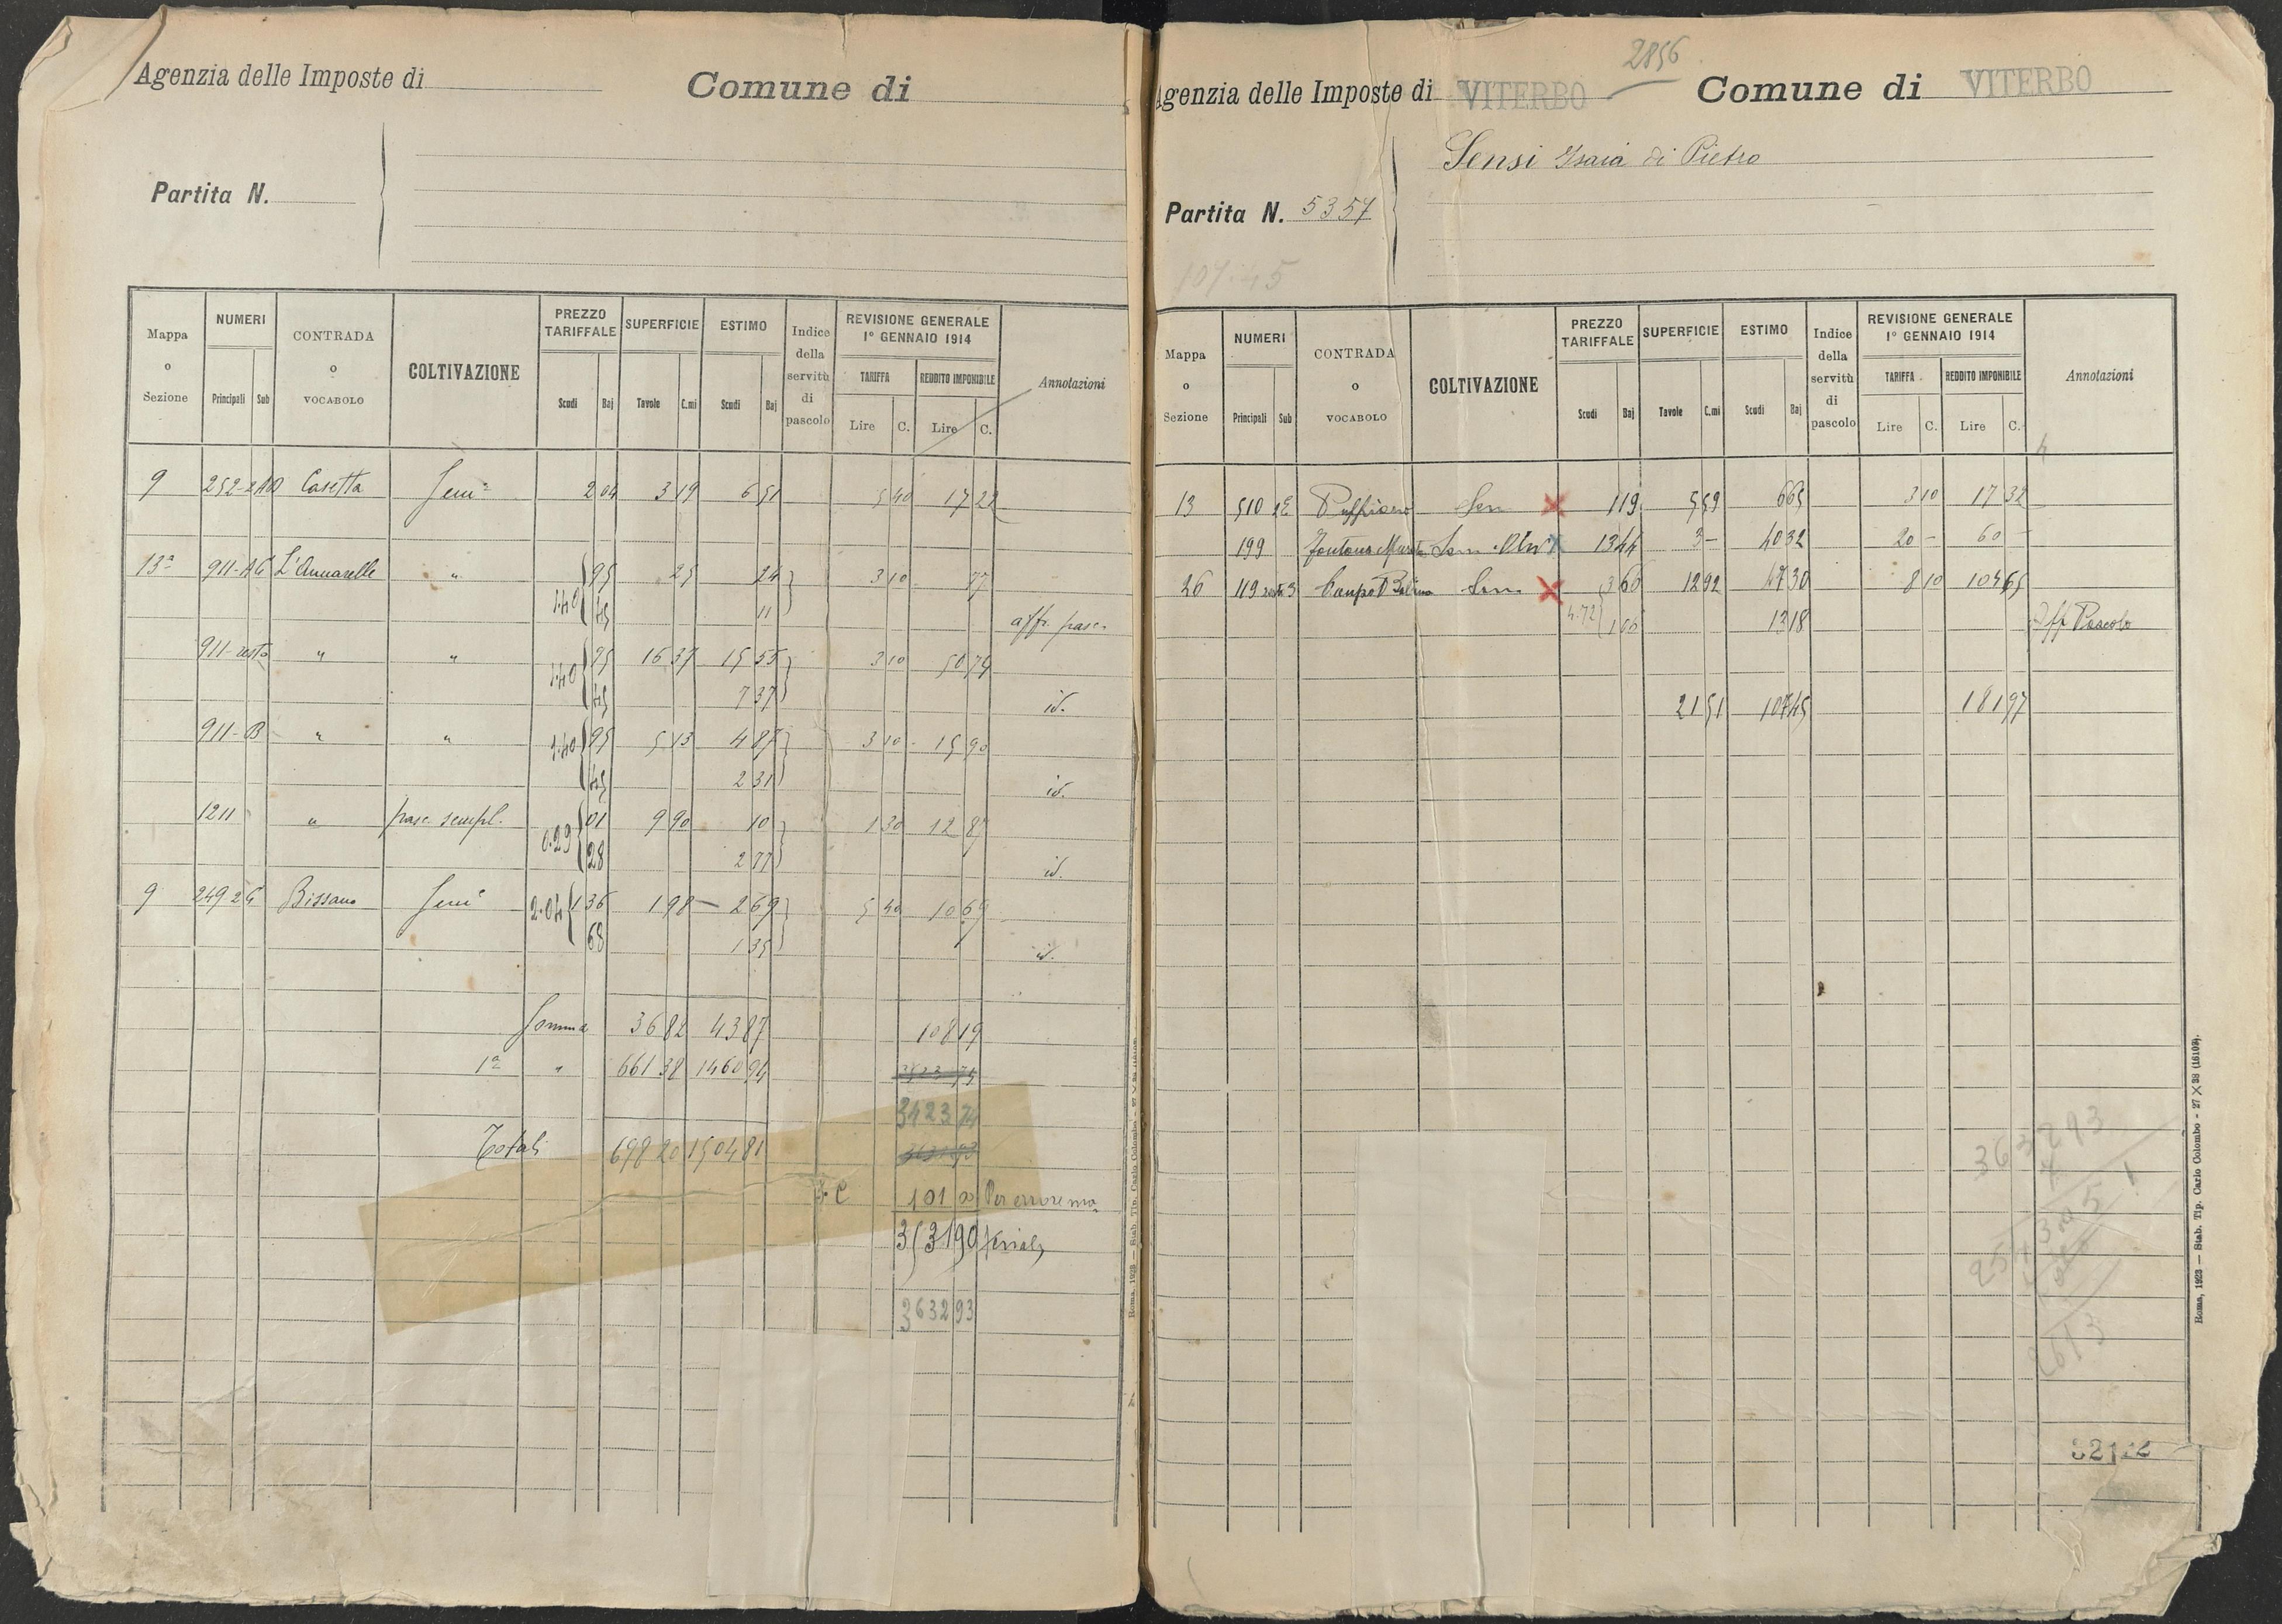 Agenzia delle Imposte di
Comune di
Partita N.
Mappa o Sezione | NUMERI Principali Sub | CONTRADA o VOCABOLO | COLTIVAZIONE | PREZZO TARIFFALE Scudi Baj | SUPERFICIE Tavole C.mi | ESTIMO Scudi Baj | Indice della servitù di pascolo | REVISIONE GENERALE 1° GENNAIO 1914 TARIFFA Lire C. REDDITO IMPONIBILE Lire C. | Annotazioni
9 252-2AD Casetta Sem° 2 04 3 19 6 51 5 40 17 22
13ª 911-AG L'Annarelle " 1.40 95 25 24 3 10 77
45 11 aff. pasc.
911-resto " " 1.40 95 16 37 15 55 3 10 50 74
45 7 37 id.
911-B " " 1.40 95 5 13 4 87 3 10 15 90
45 2 31 id.
1211 " pasc. sempl. 0.29 01 9 90 10 1 30 12 87
28 2 77 id.
9 249 2G Bissano Sem° 2.04 1 36 1 98 2 69 5 40 10 69
68 1 35 id.
Somma 36 82 43 87 108 19
1ª " 661 38 1460 94
3423 74
Totali 698 20 1504 81
101 Per errore ma
3531 90
3632 93
Roma, 1923 — Stab. Tip. Carlo Colombo
2856
Agenzia delle Imposte di VITERBO
Comune di VITERBO
Sensi Isaia di Pietro
Partita N. 5357
107.45
Mappa o Sezione | NUMERI Principali Sub | CONTRADA o VOCABOLO | COLTIVAZIONE | PREZZO TARIFFALE Scudi Baj | SUPERFICIE Tavole C.mi | ESTIMO Scudi Baj | Indice della servitù di pascolo | REVISIONE GENERALE 1° GENNAIO 1914 TARIFFA Lire C. REDDITO IMPONIBILE Lire C. | Annotazioni
13 510 2E Sem 1 19 5 59 6 65 3 10 17 32
199 Fontana Sem. 13 44 3 - 40 32 20 - 60 -
26 119 3 Campo Sem 3 66 12 92 47 30 8 10 104 65
4.72 1 06 13 18 Aff Pascolo
21 51 107 45 181 97
363293
2613
Roma, 1923 — Stab. Tip. Carlo Colombo - 27 X 38 (16102).